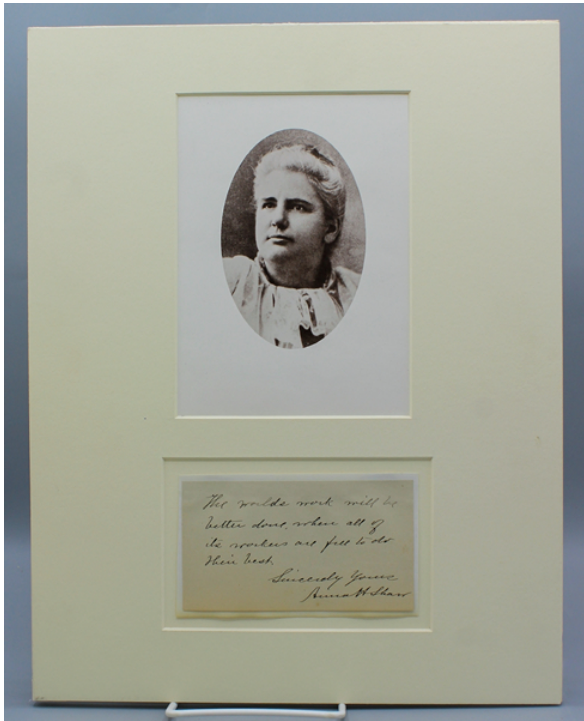 The worlds work will be
better done, when all of
its workers are free to do
their best.
Sincerely Yours
Anna H Shaw